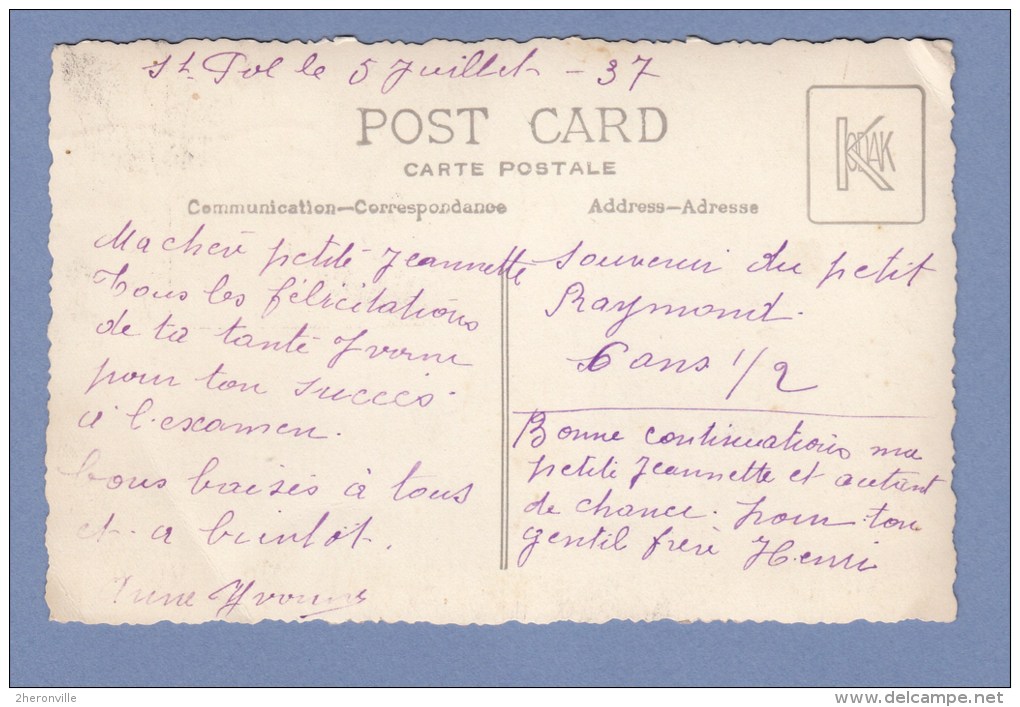 St Pol le 5 Juillet - 37
POST CARD
CARTE POSTALE
KODAK
Communication—Correspondance
Address—Adresse
Ma chère petite Jeannette
Tous les félicitations
de ta tante Yvonne
pour ton succès
à l'examen.
bons baisés à tous
et a bientôt.
Yvonne
Souvenir du petit
Raymond.
6 ans 1/2
Bonne continuations ma
petite Jeannette et autant
de chance pour ton
gentil frère Henri
2heronville
delcampe.net